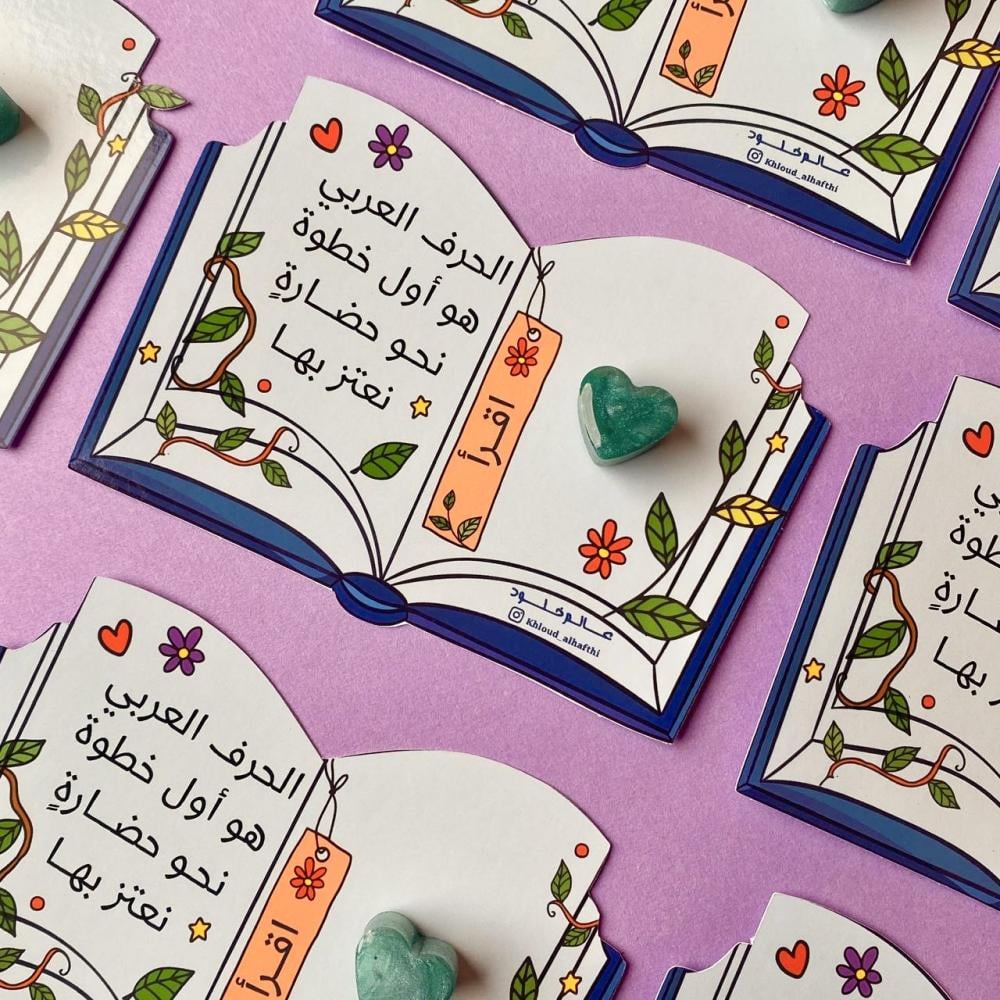 اقرأ
عالم خلود
Khloud_alhafthi
الحرف العربي
هو أول خطوة
نحو حضارةٍ
نعتز بها
اقرأ
عالم خلود
Khloud_alhafthi
الحرف العربي
هو أول خطوة
نحو حضارةٍ
نعتز بها
اقرأ